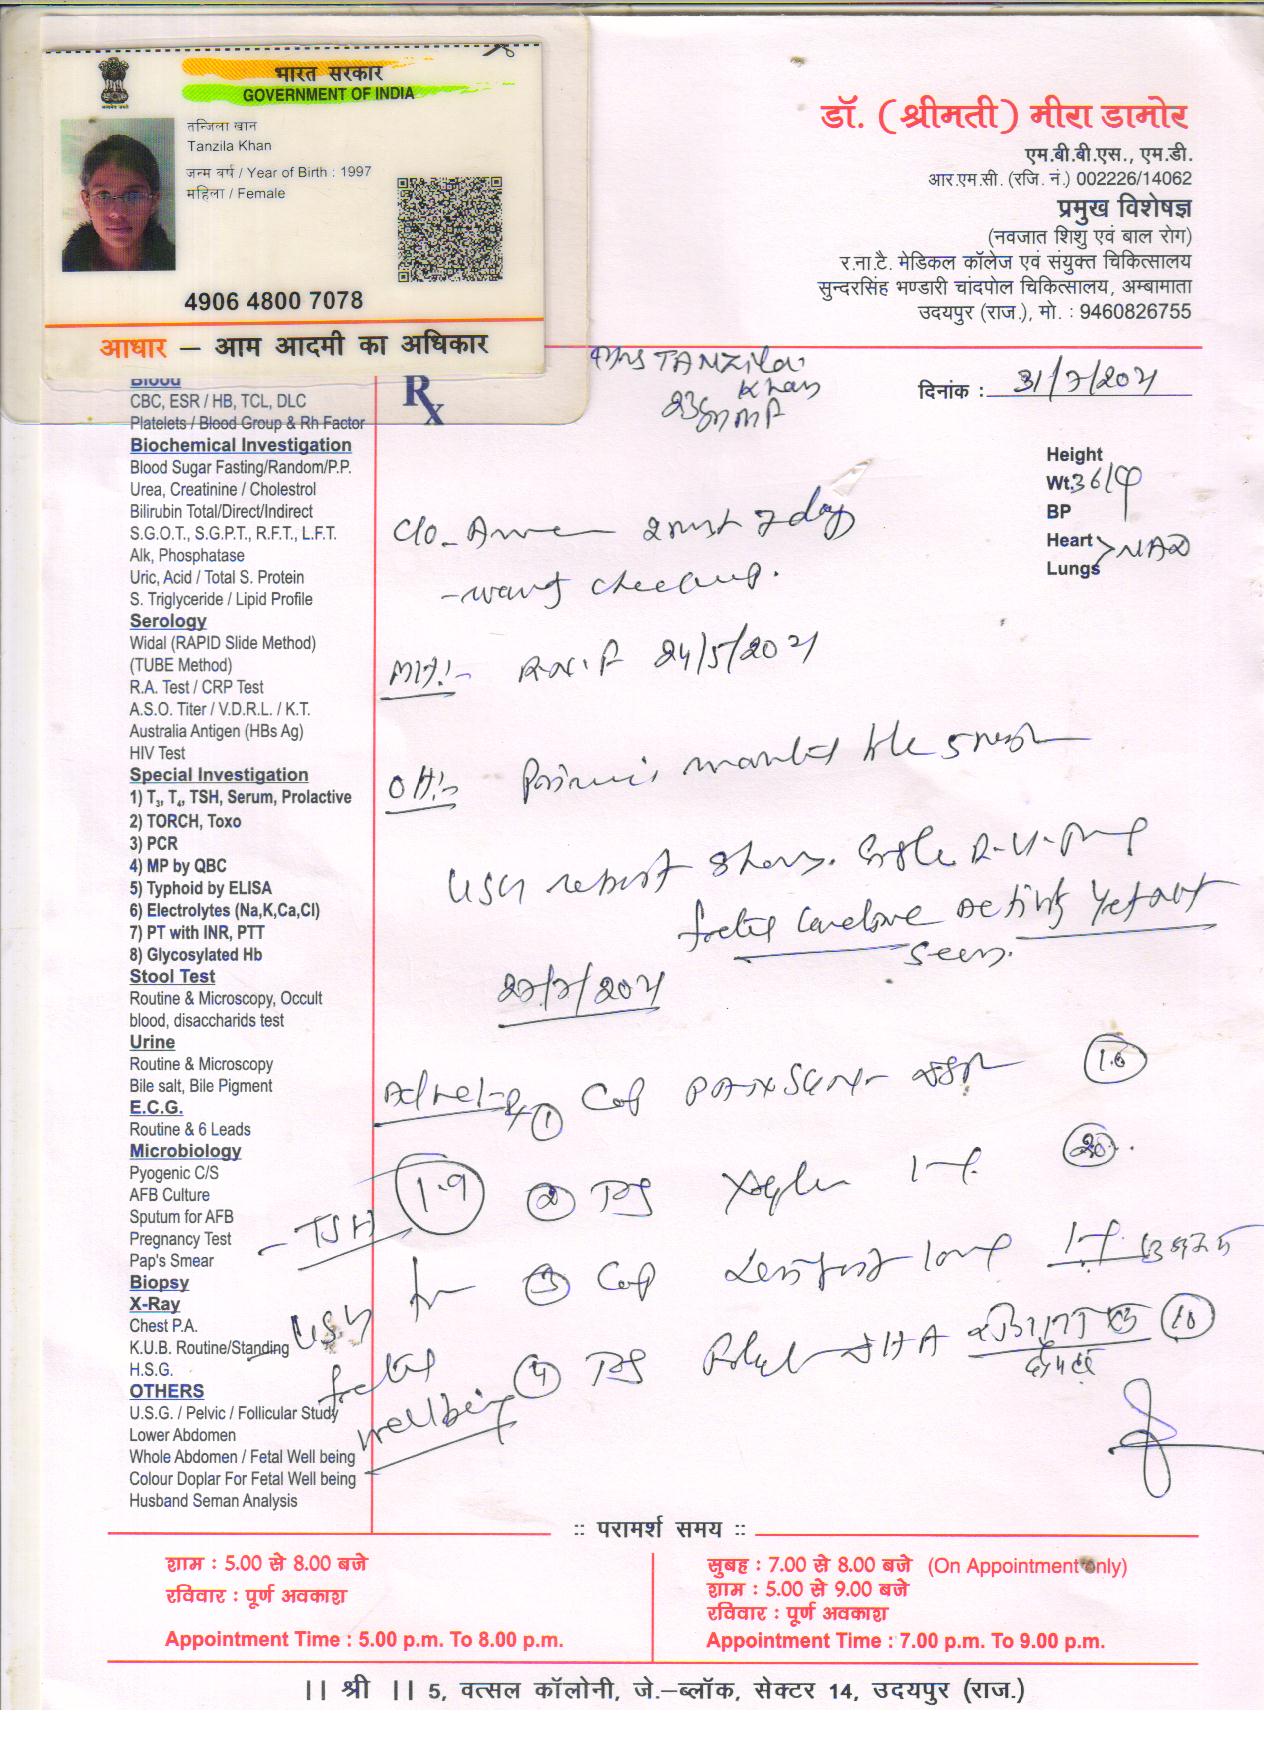 भारत सरकार
GOVERNMENT OF INDIA
तन्जिला खान
Tanzila Khan
जन्म वर्ष / Year of Birth : 1997
महिला / Female
4906 4800 7078
आधार – आम आदमी का अधिकार
डॉ. (श्रीमती) मीरा डामोर
एम.बी.बी.एस., एम.डी.
आर.एम.सी. (रजि. नं.) 002226/14062
प्रमुख विशेषज्ञ
(नवजात शिशु एवं बाल रोग)
र.ना.टै. मेडिकल कॉलेज एवं संयुक्त चिकित्सालय
सुन्दरसिंह भण्डारी चांदपोल चिकित्सालय, अम्बामाता
उदयपुर (राज.), मो. : 9460826755
Mrs TANZila
Khan
दिनांक : 31/7/2021
Rx
Height
Wt. 36
BP
Heart > NAD
Lungs
Blood
CBC, ESR / HB, TCL, DLC
Platelets / Blood Group & Rh Factor
Biochemical Investigation
Blood Sugar Fasting/Random/P.P.
Urea, Creatinine / Cholestrol
Bilirubin Total/Direct/Indirect
S.G.O.T., S.G.P.T., R.F.T., L.F.T.
Alk, Phosphatase
Uric, Acid / Total S. Protein
S. Triglyceride / Lipid Profile
Serology
Widal (RAPID Slide Method)
(TUBE Method)
R.A. Test / CRP Test
A.S.O. Titer / V.D.R.L. / K.T.
Australia Antigen (HBs Ag)
HIV Test
Special Investigation
1) T3, T4, TSH, Serum, Prolactive
2) TORCH, Toxo
3) PCR
4) MP by QBC
5) Typhoid by ELISA
6) Electrolytes (Na,K,Ca,Cl)
7) PT with INR, PTT
8) Glycosylated Hb
Stool Test
Routine & Microscopy, Occult
blood, disaccharids test
Urine
Routine & Microscopy
Bile salt, Bile Pigment
E.C.G.
Routine & 6 Leads
Microbiology
Pyogenic C/S
AFB Culture
Sputum for AFB
Pregnancy Test
Pap's Smear
Biopsy
X-Ray
Chest P.A.
K.U.B. Routine/Standing
H.S.G.
OTHERS
U.S.G. / Pelvic / Follicular Study
Lower Abdomen
Whole Abdomen / Fetal Well being
Colour Doplar For Fetal Well being
Husband Seman Analysis
C/O - 7 day
- want checkup.
M/H:- 24/5/2021
O/H:-
USG report shows. Single
foetal cardiac activity yet not
seen.
27/7/2021
Adv
① Cap
② TAB
③ Cap
④ TAB
- TSH
USG for
foetal
wellbeing
:: परामर्श समय ::
शाम : 5.00 से 8.00 बजे
रविवार : पूर्ण अवकाश
Appointment Time : 5.00 p.m. To 8.00 p.m.
सुबह : 7.00 से 8.00 बजे (On Appointment only)
शाम : 5.00 से 9.00 बजे
रविवार : पूर्ण अवकाश
Appointment Time : 7.00 p.m. To 9.00 p.m.
|| श्री || 5, वत्सल कॉलोनी, जे.–ब्लॉक, सेक्टर 14, उदयपुर (राज.)